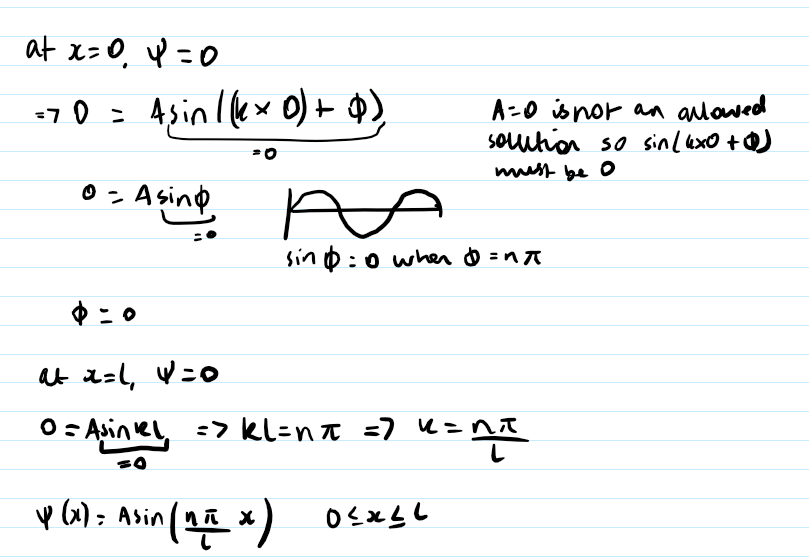 at x=0, ψ=0
=> 0 = Asin((k×0)+φ)
=0
A=0 is not an allowed
solution so sin(k×0+φ)
must be 0
0 = Asinφ
=0
sin φ = 0 when φ = nπ
φ = 0
at x=L, ψ=0
0=AsinkL => kL=nπ => k=nπ/L
=0
ψ(x)= Asin(nπ/L x) 0≤x≤L